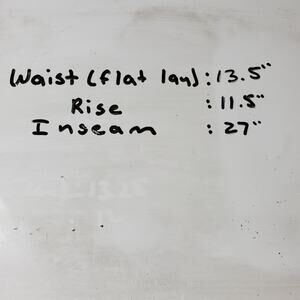 Waist (flat lay) : 13.5"
Rise : 11.5"
Inseam : 27"